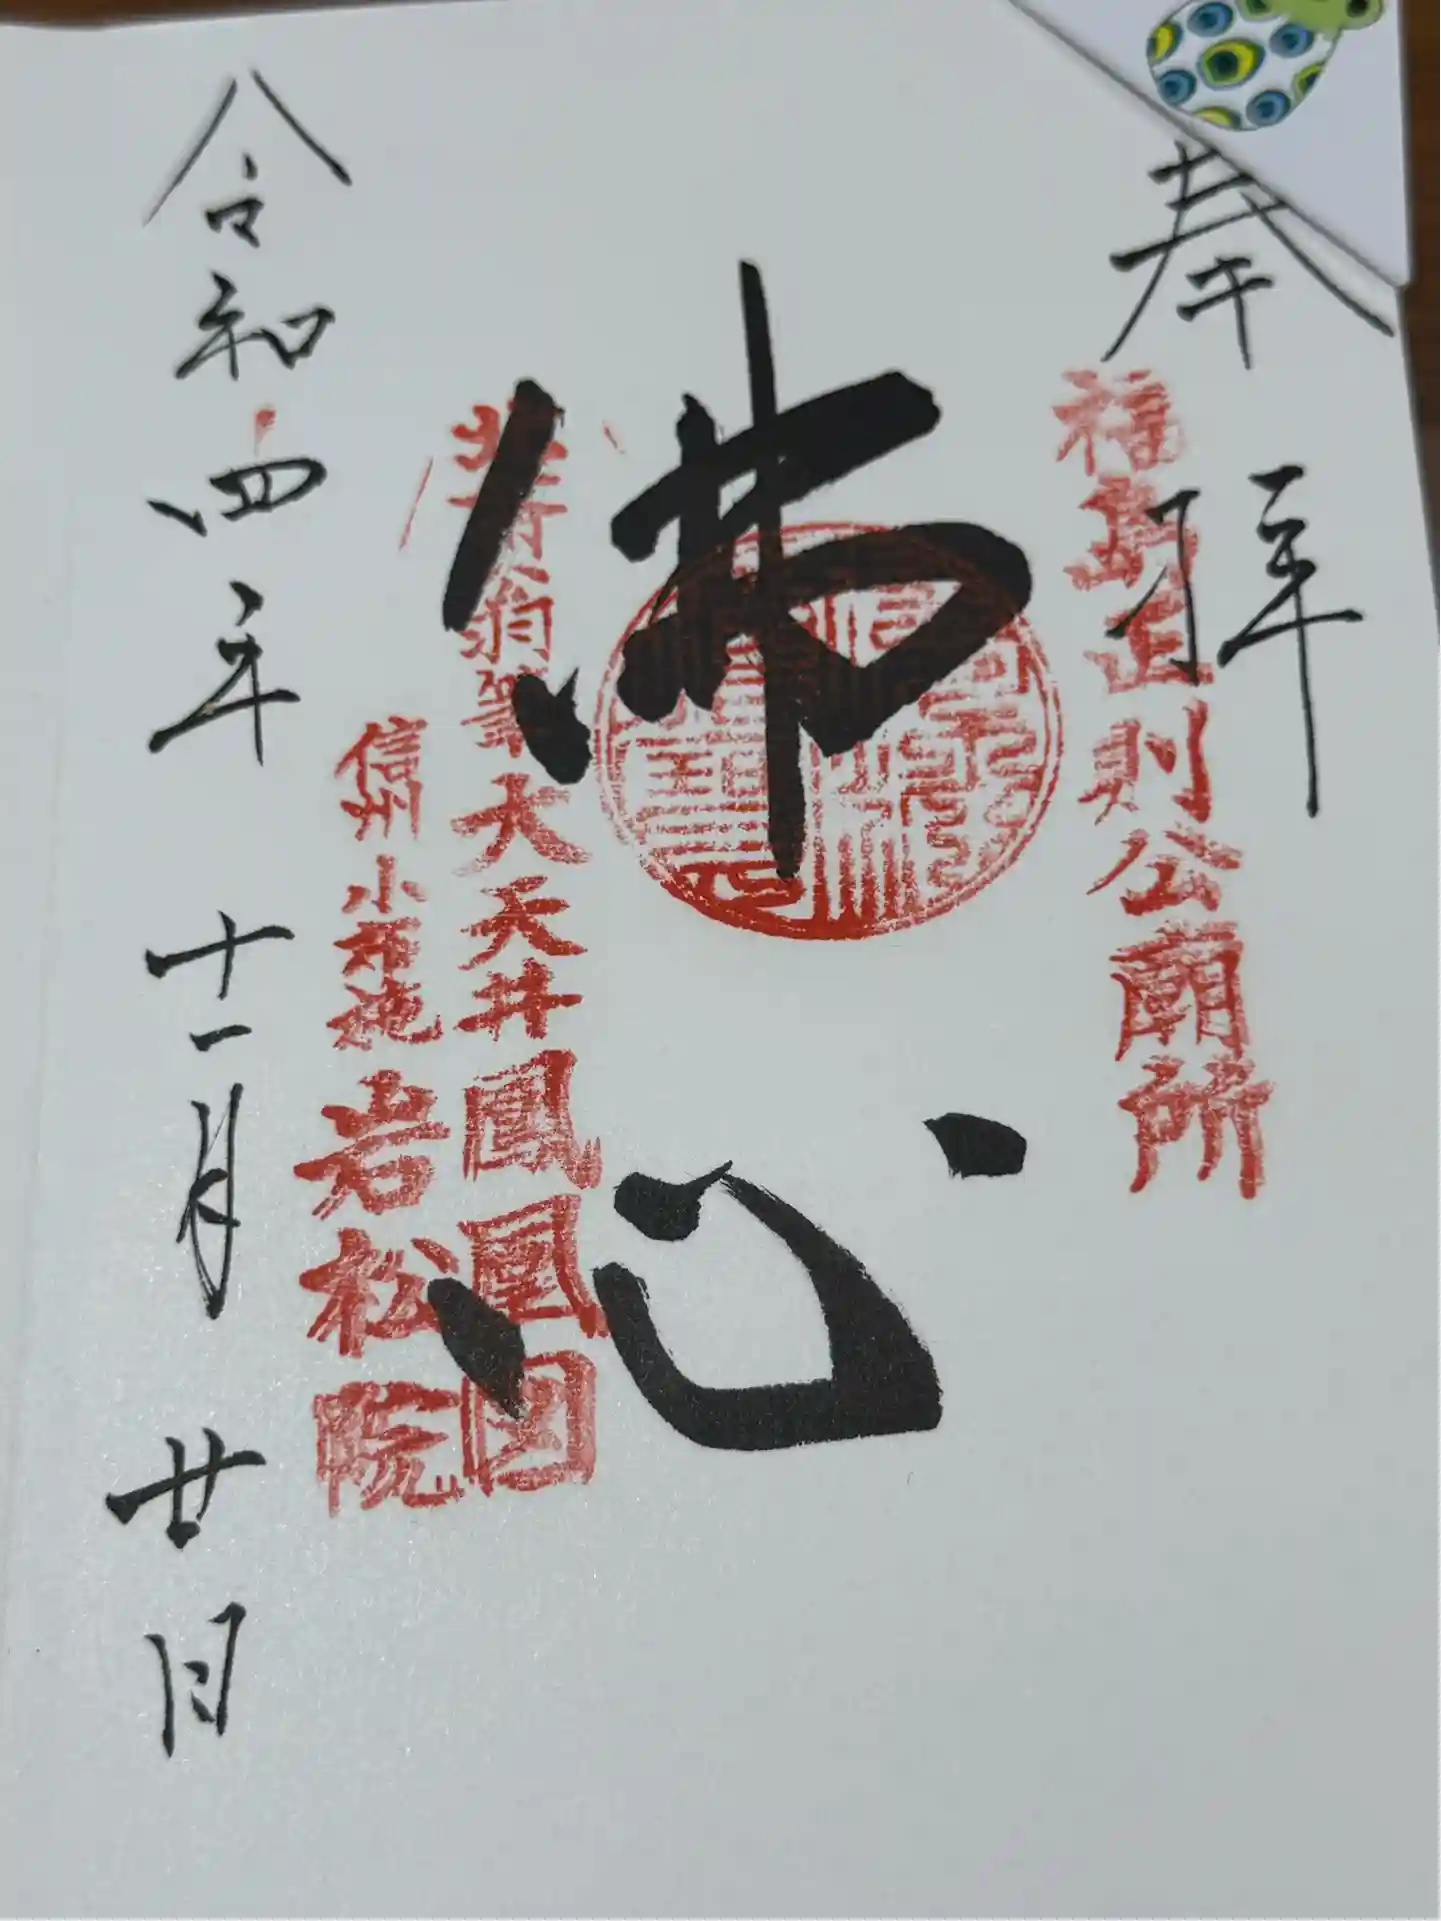 奉拝
福島正則公廟所
佛心
葦斉翁筆大天井鳳凰図
信州小布施岩松院
令和四年十一月廿日